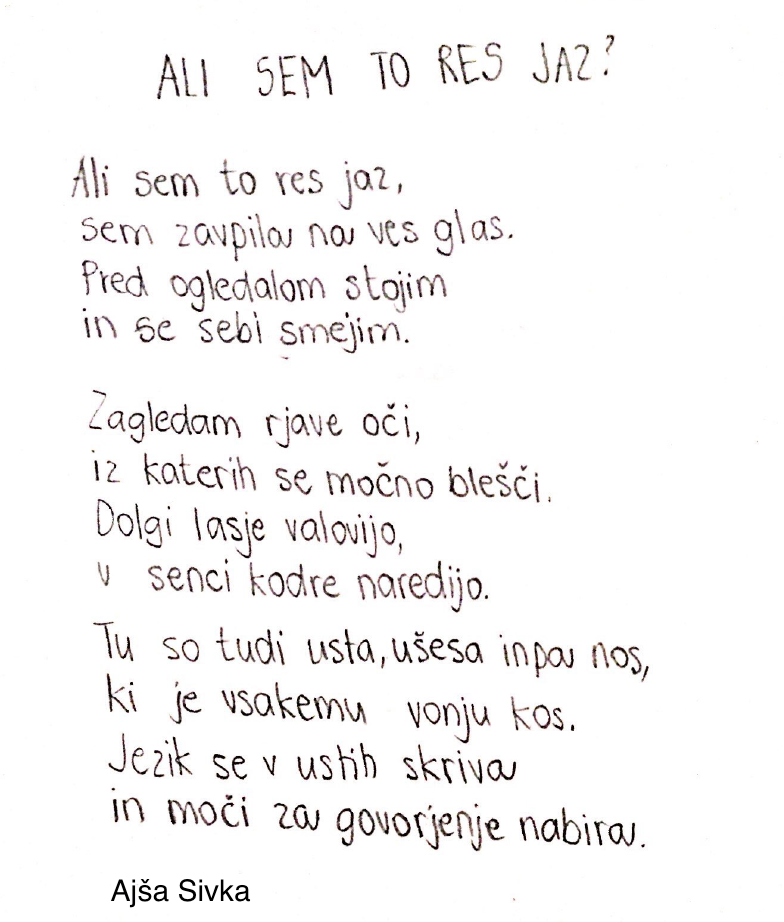 ALI SEM TO RES JAZ?
Ali sem to res jaz,
sem zavpila na ves glas.
Pred ogledalom stojim
in se sebi smejim.
Zagledam rjave oči,
iz katerih se močno blešči.
Dolgi lasje valovijo,
v senci kodre naredijo.
Tu so tudi usta, ušesa in pa nos,
ki je vsakemu vonju kos.
Jezik se v ustih skriva
in moči za govorjenje nabira.
Ajša Sivka